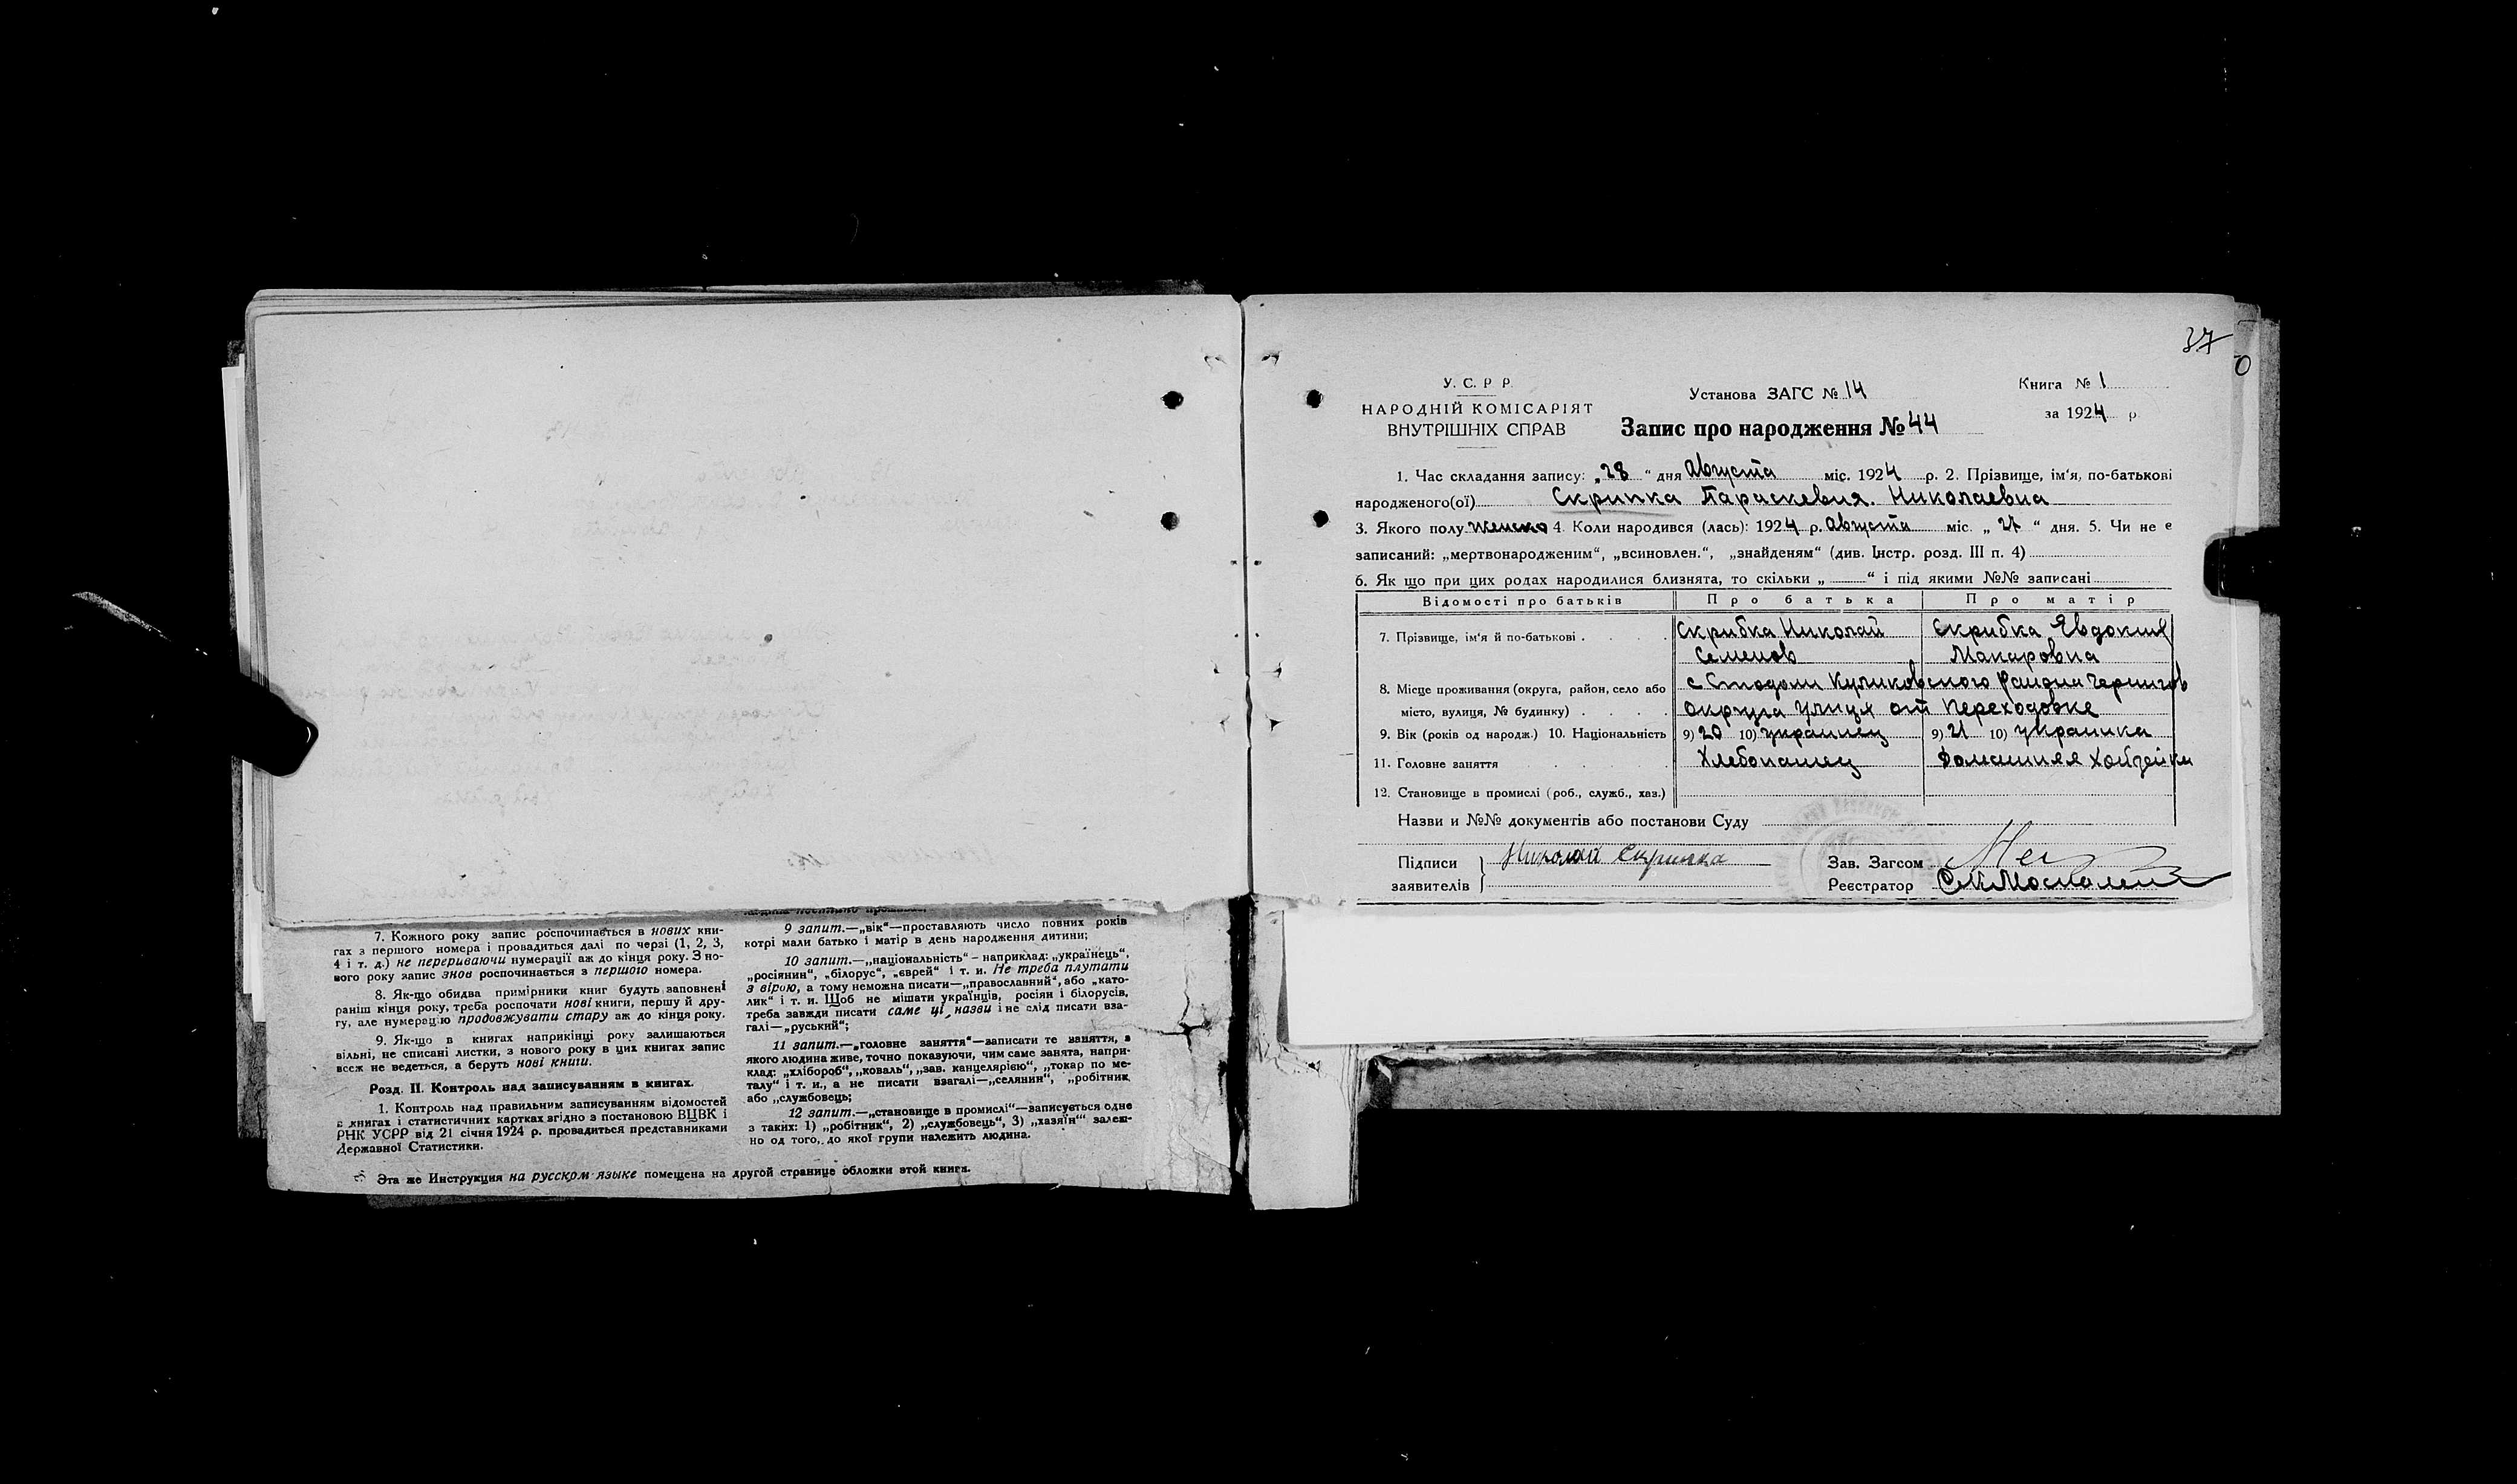 7. Кожного року запис роспочинається в нових кни-
гах з першого номера і провадиться далі по черзі (1, 2, 3,
4 і т. д.) не перериваючи нумерації аж до кінця року. З но-
вого року запис знов роспочинається з першого номера.
8. Як-що обидва примірники книг будуть заповнені
раніш кінця року, треба роспочати нові книги, першу й дру-
гу, але нумерацію продовжувати стару аж до кінця року.
9. Як-що в книгах наприкінці року залишаються
вільні, не списані листки, з нового року в цих книгах запис
всеж не ведеться, а беруть нові книги.
Розд. II. Контроль над записуванням в книгах.
1. Контроль над правильним записуванням відомостей
в книгах і статистичних картках згідно з постановою ВЦВК і
РНК УСРР від 21 січня 1924 р. провадиться представниками
Державної Статистики.
9 запит.—„вік“—проставляють число повних років
котрі мали батько і матір в день народження дитини;
10 запит.—„національність“ – наприклад: „українець“,
„росіянин“, „білорус“, „єврей“ і т. и. Не треба плутати
з вірою, а тому неможна писати—„православний“, або „като-
лик“ і т. и. Щоб не мішати українців, росіян і білорусів,
треба завжди писати саме ці назви і не слід писати вза-
галі—„руський“;
11 запит.—„головне заняття“—записати те заняття, з
якого людина живе, точно показуючи, чим саме занята, напри-
клад: „хлібороб“, „коваль“, „зав. канцелярією“, „токар по ме-
талу“ і т. и., а не писати взагалі—„селянин“, „робітник
або „службовець;
12 запит.—„становище в промислі“—записується одне
з таких: 1) „робітник“, 2) „службовець“, 3) „хазяїн“ залеж-
но од того, до якої групи належить людина.
Эта же Инструкция на русском языке помещена на другой странице обложки этой книги.
37
У. С. Р Р.
НАРОДНІЙ КОМІСАРІЯТ
ВНУТРІШНІХ СПРАВ
Установа ЗАГС № 14
Запис про народження № 44
Книга № 1
за 1924 р.
1. Час складання запису: „28“ дня Августа міс. 1924 р. 2. Прізвище, ім‘я, по-батькові
народженого(ої) Скрипка Параскевия. Николаевна
3. Якого полу женско 4. Коли народився (лась): 1924 р. Августа міс. „27“ дня. 5. Чи не є
записаний: „мертвонародженим“, „всиновлен.“, „знайденям“ (див. Інстр. розд. III п. 4)
6. Як що при цих родах народилися близнята, то скільки „ “ і під якими №№ записані
Відомості про батьків Про батька Про матір
7. Прізвище, ім‘я й по-батькові Скрибка Николай Скрибка Явдокия
Семенов Макаровна
8. Місце проживання (округа, район, село або с Стодоли Куликовского Раиона Чернигов
місто, вулиця, № будинку) округа улиця от Переходовке
9. Вік (років од народж.) 10. Національність 9) 20 10) украинец 9) 21 10) украинка
11. Головне заняття Хлебопашец Домашняя Хозяйка
12. Становище в промислі (роб., служб., хаз.)
Назви и №№ документів або постанови Суду
Підписи заявителів Николай Скрипка
Зав. Загсом
Реєстратор